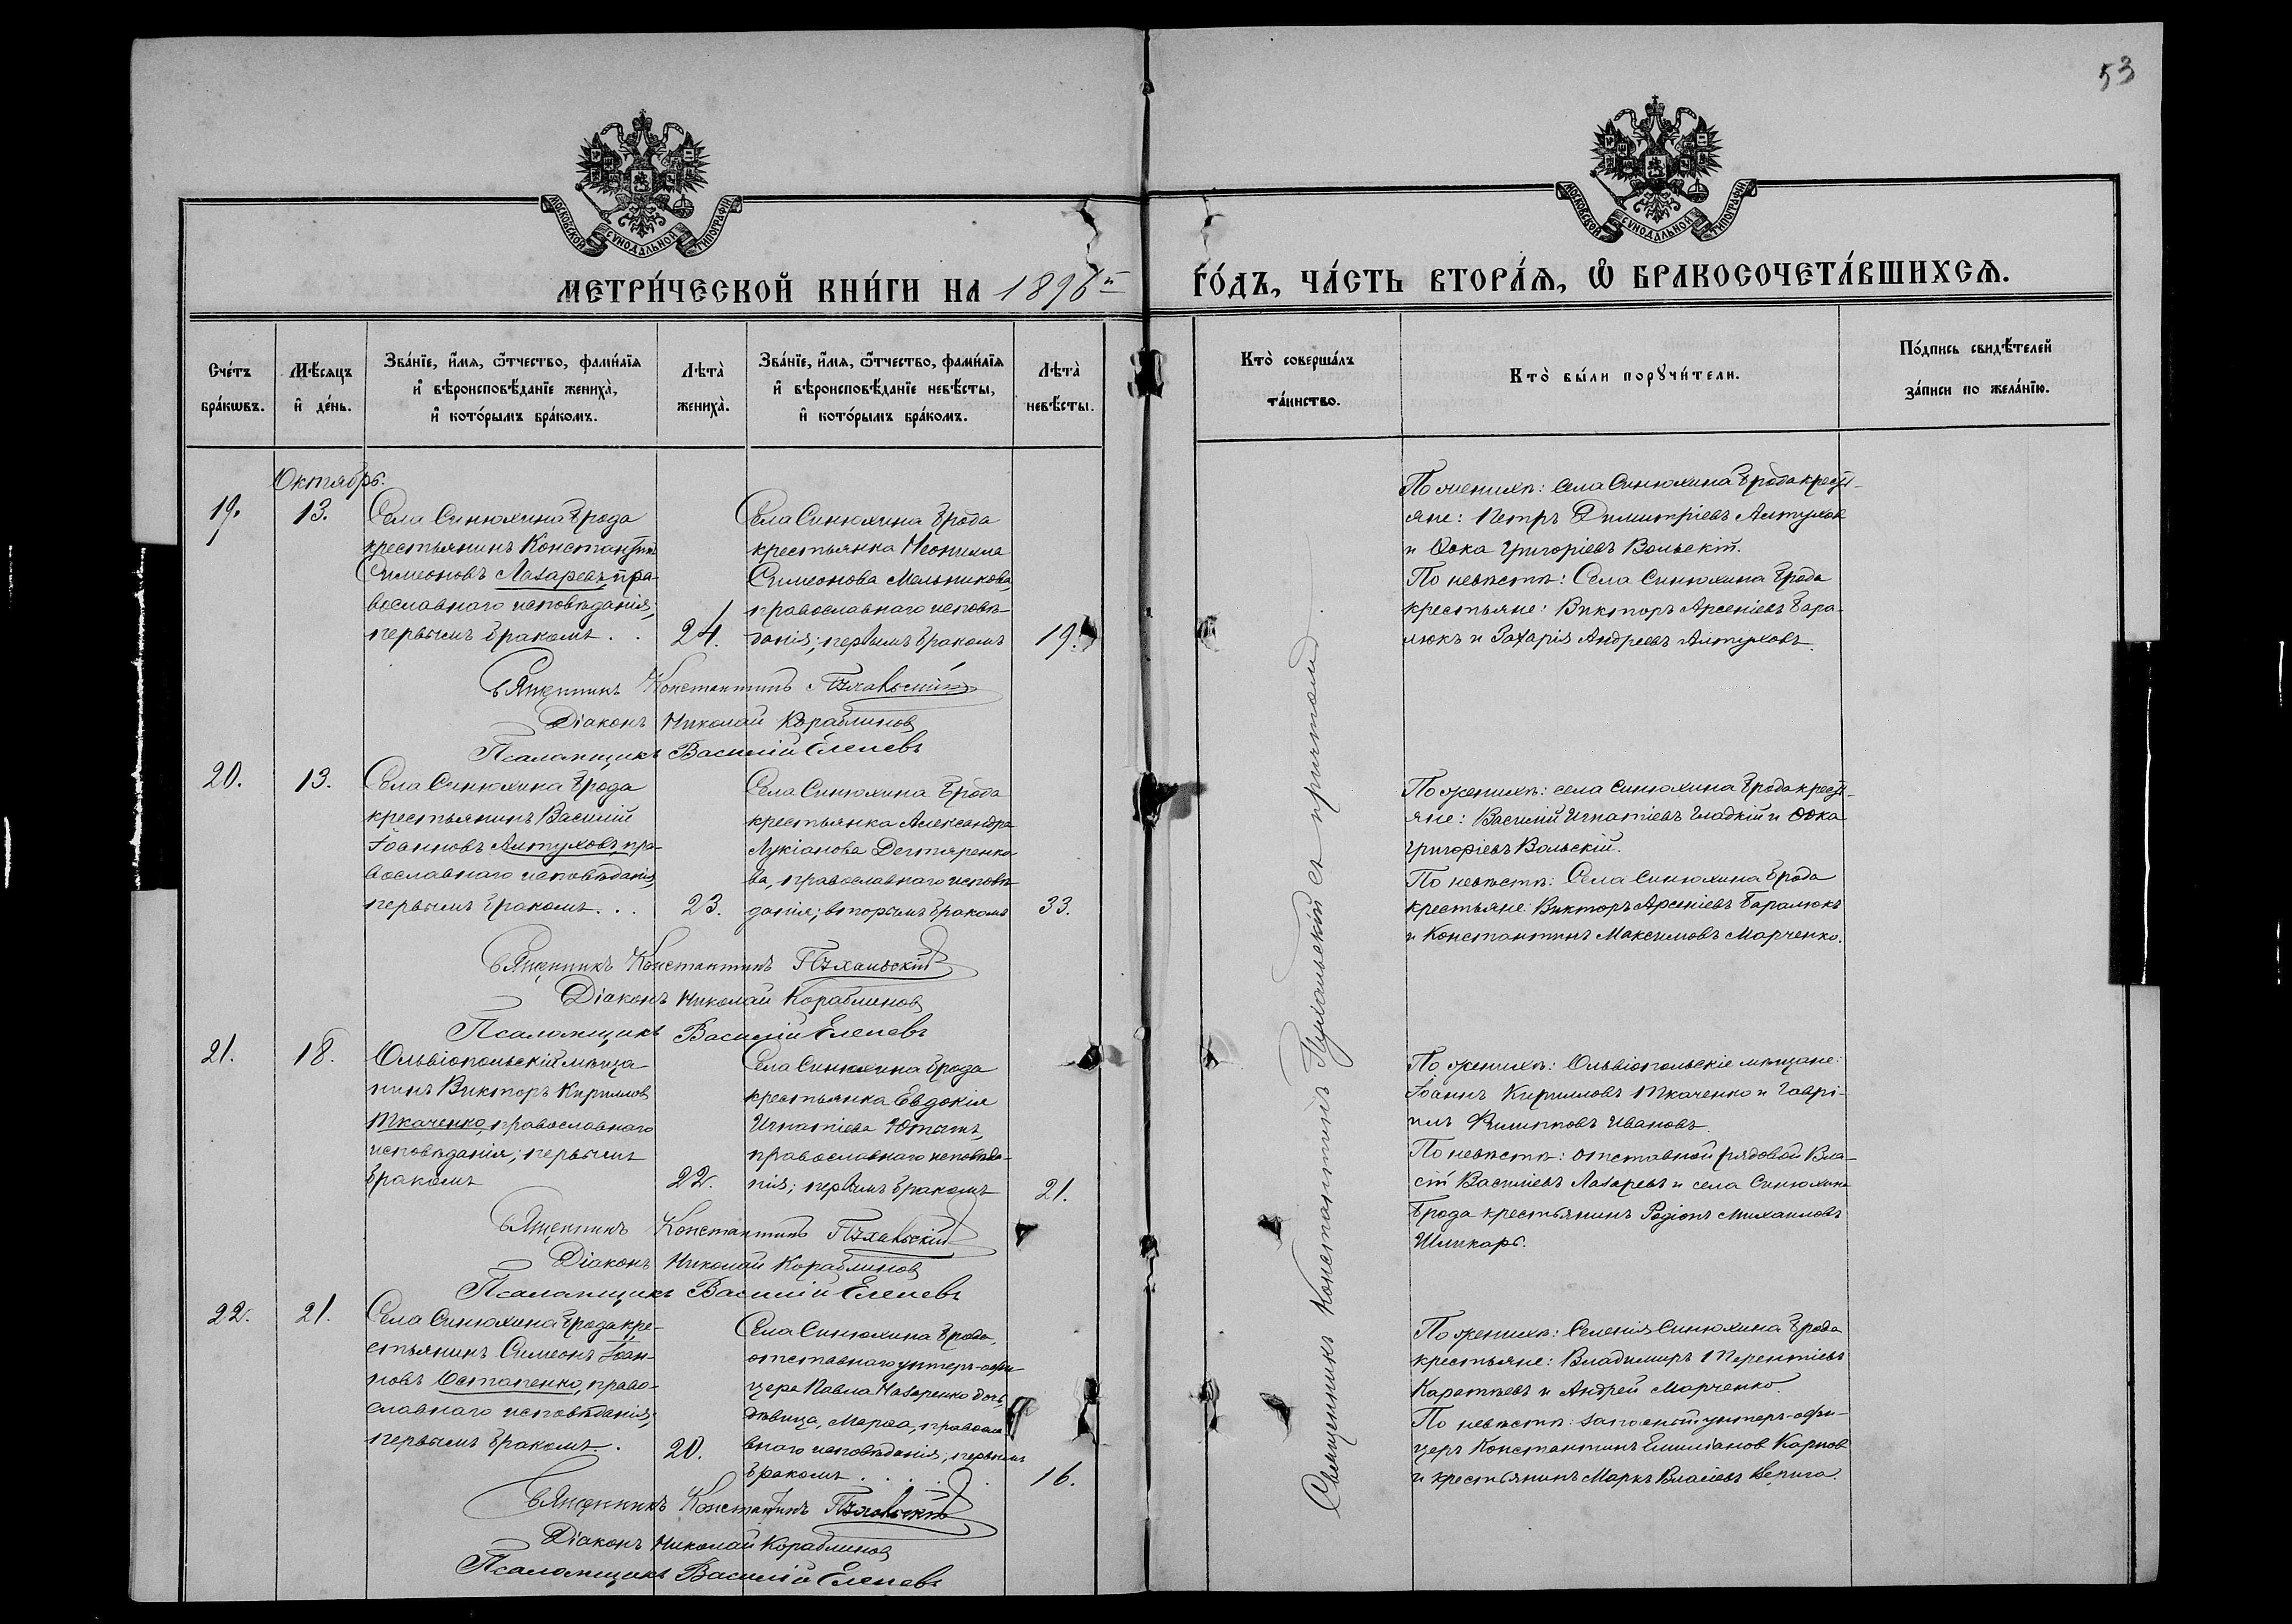 53
МОСКОВСКОЙ СѴНОДАЛЬНОЙ ТИПОГРАФІИ
МОСКОВСКОЙ СѴНОДАЛЬНОЙ ТИПОГРАФІИ
МЕТРИ́ЧЕСКОЙ КНИ́ГИ НА 1896й
ГО́ДЪ, ЧА́СТЬ ВТОРА́Ѧ, Ѽ БРАКОСОЧЕТА́ВШИХСѦ.
Сче́тъ бра́кѡвъ.
Мѣ́сяцъ и҆ де́нь.
Зва́нїе, и҆́мя, ѻ҆́тчество, фами́лїя
и҆ вѣроисповѣ́данїе жениха̀,
и҆ кото́рымъ бра́комъ.
Лѣта̀ жениха̀.
Зва́нїе, и҆́мя, ѻ҆́тчество, фами́лїя
и҆ вѣроисповѣ́данїе невѣ́сты,
и҆ кото́рымъ бра́комъ.
Лѣта̀ невѣ́сты.
Кто̀ соверша́лъ та́инство.
Кто̀ бы́ли порꙋчи́тели.
По́дпись свидѣ́телей за́писи по жела́нїю.
Октябрь.
19.
13.
Села Синюхина Брода
крестьянинъ Константинъ
Симеоновъ Лазаревъ, пра-
вославнаго исповѣданія,
первымъ бракомъ . .
24.
Села Синюхина Брода
крестьянка Неонилла
Симеонова Мельникова,
православнаго исповѣ-
данія; первымъ бракомъ
19.
По женихѣ: села Синюхина Брода кресть-
яне: Петръ Димитріевъ Алтуховъ
и Ѳока Григоріевъ Вольскій.
По невѣстѣ: Села Синюхина Брода
крестьяне: Викторъ Арсеніевъ Бара-
люкъ и Захарія Андреевъ Алтуховъ.
Священникъ Константинъ
Діаконъ Николай Кораблиновъ
Псаломщикъ Василій Елепевъ
20.
13.
Села Синюхина Брода
крестьянинъ Василій
Іоанновъ Алтуховъ, пра-
вославнаго исповѣданія,
первымъ бракомъ . . .
23.
Села Синюхина Брода
крестьянка Александра
Лукіанова Дегтяренко-
ва, православнаго исповѣ-
данія; вторымъ бракомъ
33.
По женихѣ: села Синюхина Брода кресть-
яне: Василій Игнатіевъ Гладкій и Ѳока
Григоріевъ Вольскій.
По невѣстѣ: Села Синюхина Брода
крестьяне: Викторъ Арсеніевъ Баралюкъ
и Константинъ Максимовъ Марченко.
Священникъ Константинъ
Діаконъ Николай Кораблиновъ
Псаломщикъ Василій Елепевъ
21.
18.
Ольвіопольскій мѣща-
нинъ Викторъ Кириллов
Ткаченко, православнаго
исповѣданія; первымъ
бракомъ
22.
Села Синюхина Брода
крестьянка Евдокія
Игнатіева
православнаго исповѣда-
нія; первымъ бракомъ
21.
По женихѣ: Ольвіопольскіе мѣщане:
Іоаннъ Кирилловъ Ткаченко и Гаврі-
илъ Филипповъ Ивановъ.
По невѣстѣ: отставной рядовой Вла-
сій Василіевъ Лазаревъ и села Синюхина
Брода крестьянинъ Родіонъ Михаиловъ
Шликарь.
Священникъ Константинъ
Діаконъ Николай Кораблиновъ
Псаломщикъ Василій Елепевъ
22.
21.
Села Синюхина Брода кре-
стьянинъ Симеонъ Іоан-
новъ Остапенко, право-
славнаго исповѣданія,
первымъ бракомъ. .
20.
Села Синюхина Брода,
отставнаго унтеръ-офи-
цера Павла Назаренко дочь,
дѣвица, Марѳа, правосла-
внаго исповѣданія, первымъ
бракомъ . . . .
16.
По женихѣ: Селенія Синюхина Брода
крестьяне: Владимиръ Терентіевъ
и Андрей Марченко.
По невѣстѣ: запасной унтеръ-офи-
церъ Константинъ Емиліанов Карпов
и крестьянинъ Маркъ Власіевъ
Священникъ Константинъ
Діаконъ Николай Кораблиновъ
Псаломщикъ Василій Елепевъ
Священникъ Константинъ Пухальскій съ причтомъ.